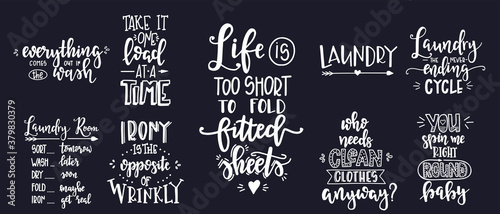 everything
COMES OUT IN
THE wash
TAKE IT
ONE
load
AT·A
TIME
Life IS
TOO SHORT
TO FOLD
fitted
sheets
LAUNDRY
Laundry
THE NEVER
ending
CYCLE
Laundry Room
SORT tomorrow
WASH later
DRY soon
FOLD maybe
IRON get real
IRONY
IS THE
opposite
OF
WRINKLY
who
NEEDS
CLEAN
CLOTHES
anyway?
YOU
spin me
RIGHT
ROUND
baby
Adobe Stock | #379830379